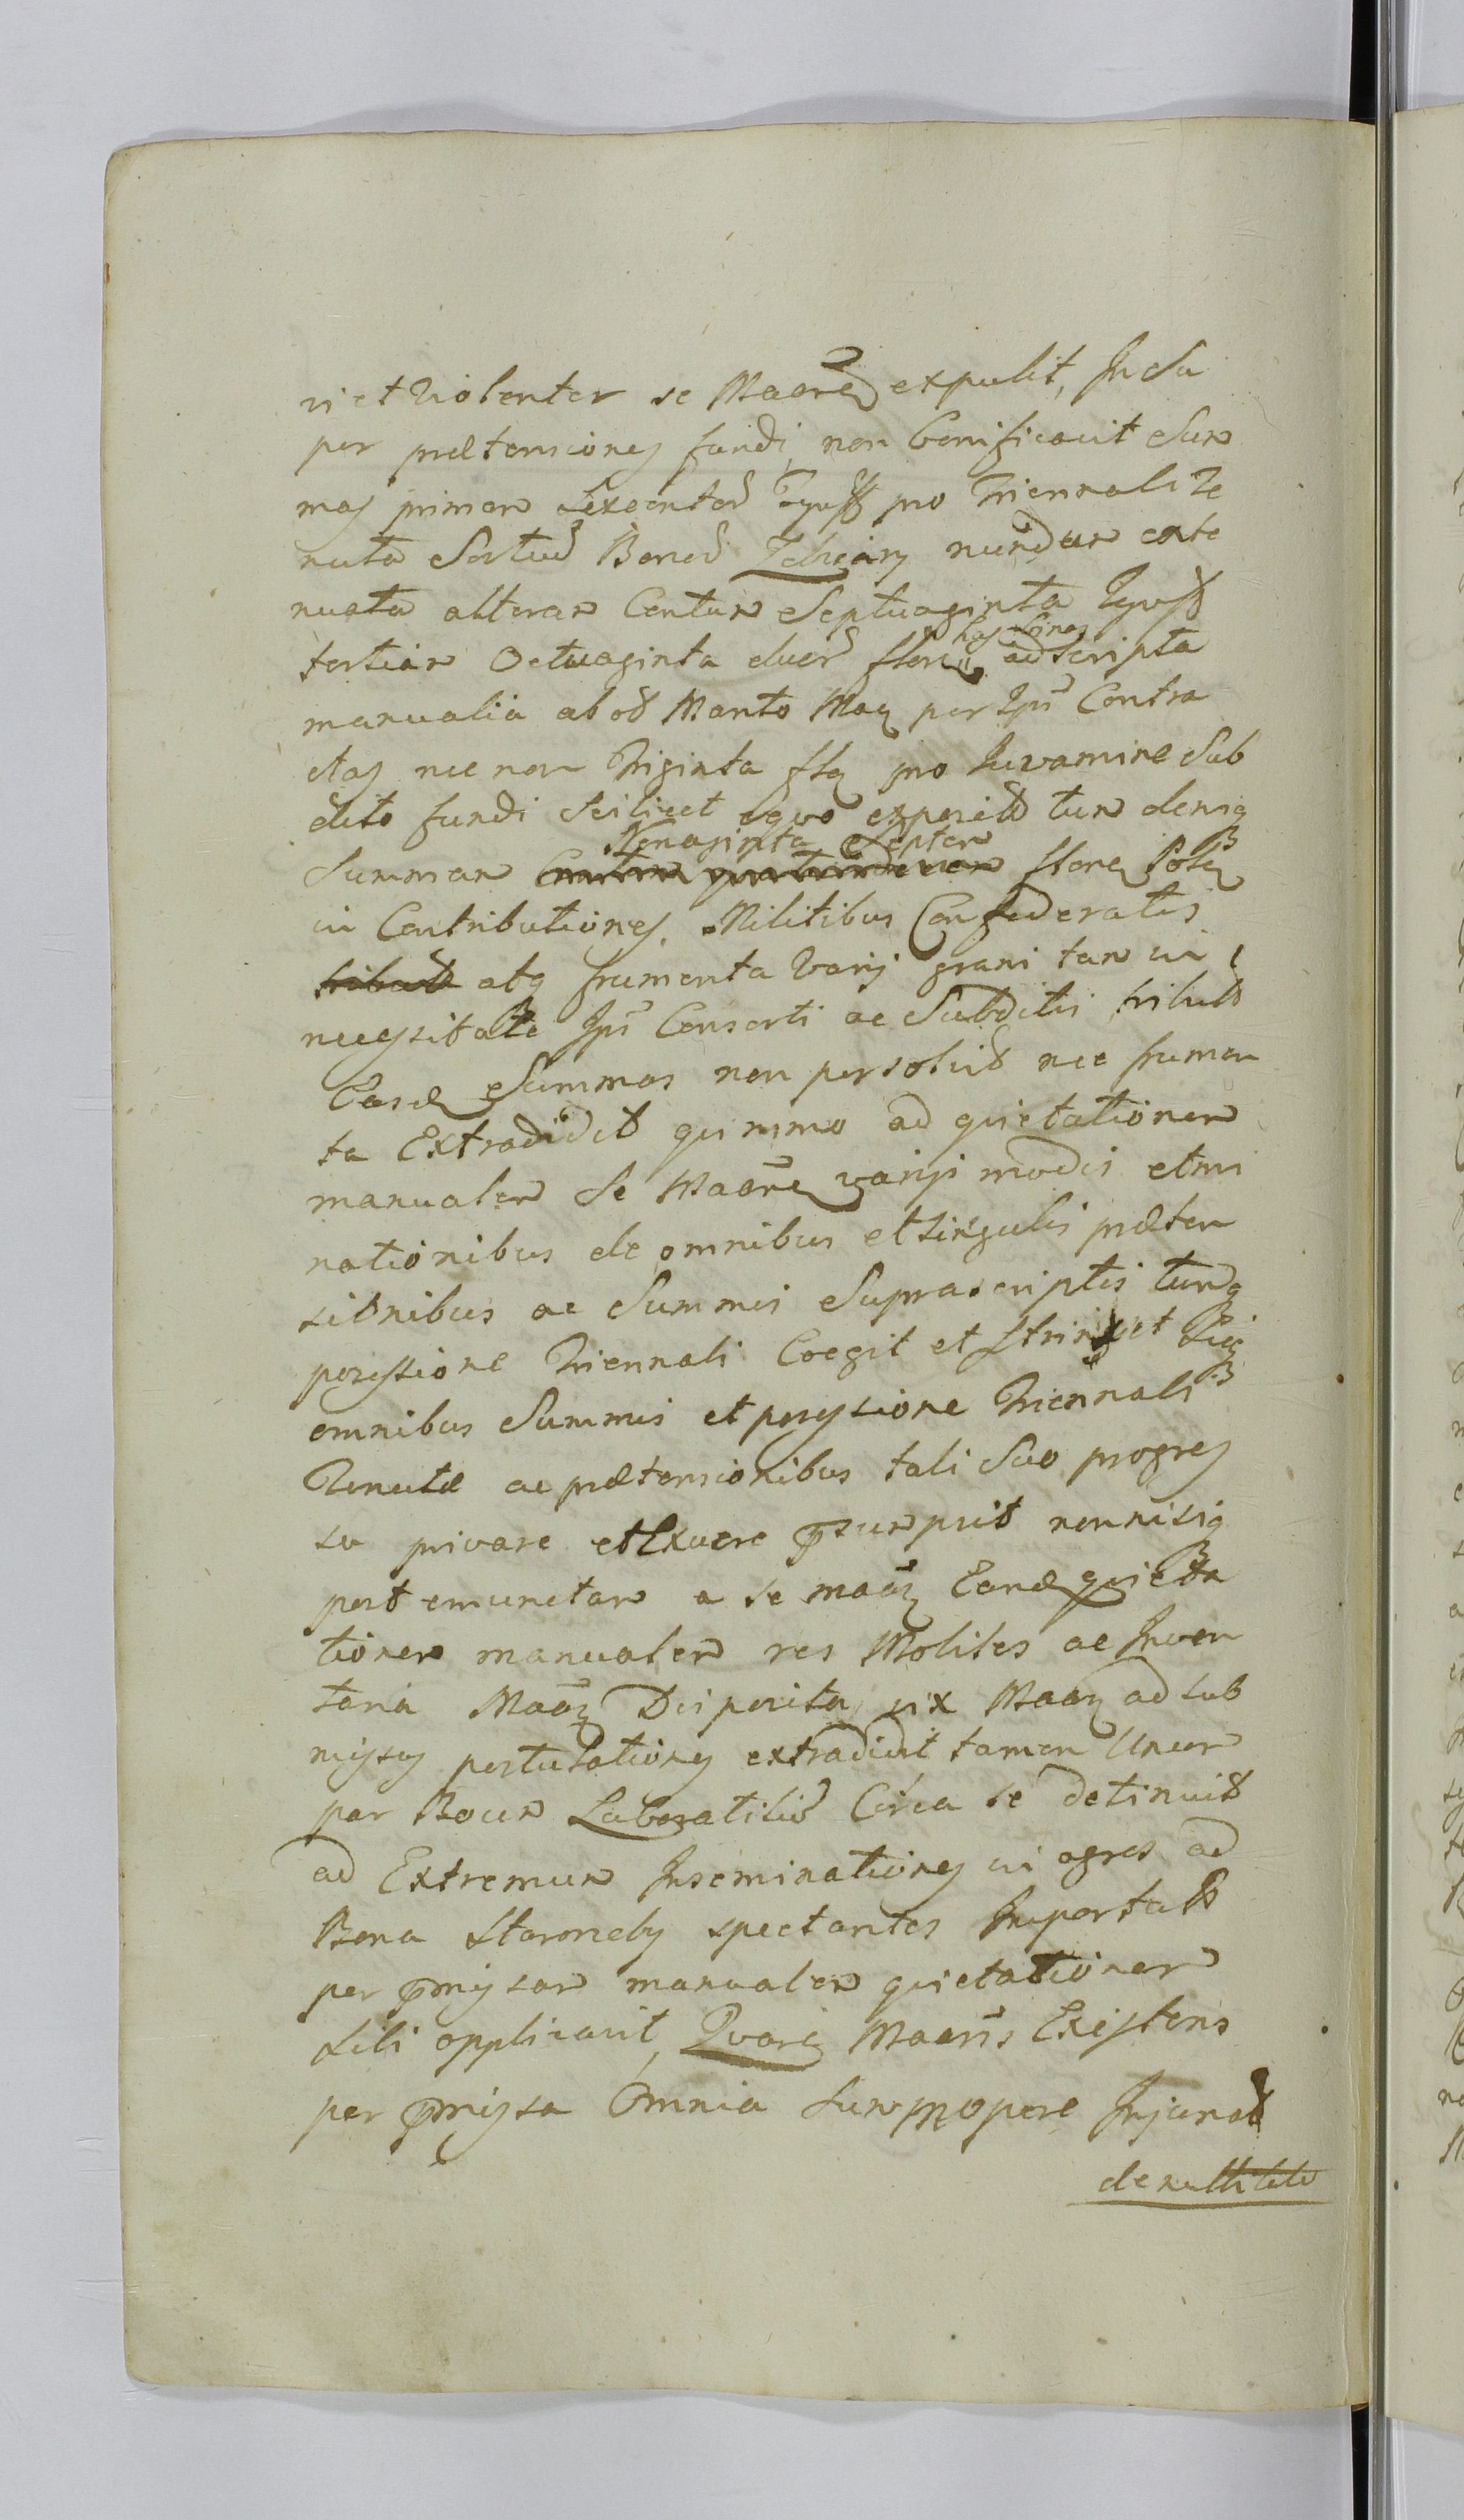 vi et violenter se Maarē expulit, Insu
per prætensiones fundi non bonificavit Sum
mas primam sexentaȓ Tynff pro Triennali Te
nuta Sortiū Bonoȓ Zdviany nundum exte
nuata alteram Centum Septuaginta Tynff
tertiam Octuaginta duoȓ floreñ
has binas
adscripta
manualia ab od Manto Mag per Ips Contra
ctas nec non Triginta flȓ pro Iuvamine Sub
dito fundi Scilicet equo exposit tum deniq
Summam Nonaginta Septem floreñ Polȓ
in Contributiones Militibus Confederatis
tribut atq frumenta varij grani tam in
necessitate Ips Consorti ac Subditis tribut
Easd Summas non persolvit nec frumen
ta Extradidit quinimo ad quietationem
manualem se Maarē varijs modis et mi
nationibus de omnibus et singulis præten
sionibus ac Summis Suprascriptis tumq
possessione Triennali Coegit et strinxit Sicq
omnibus Summis et possessione Triennali
Tenutæ ac prætensionibus tali Suo progres
su privare et Exuere p̄sumpsit nonnisiq
post emunctam a se maar Eand quieta
tionem manualem res Mobiles ac Inven
taria Maar Deposita vix Maar ad sub
missas postulationes extradidit tamen Unum
par Boum Laboratiliū Circa se detinuit
ad Extremum Inseminationes in agros ad
Bona Staromeby spectantes Importat
per p̄missam manualem quietationem
Sibi applicavit, Quare Maarīs Existens
per p̄missa Omnia Summopere Injuriat
de nullitate